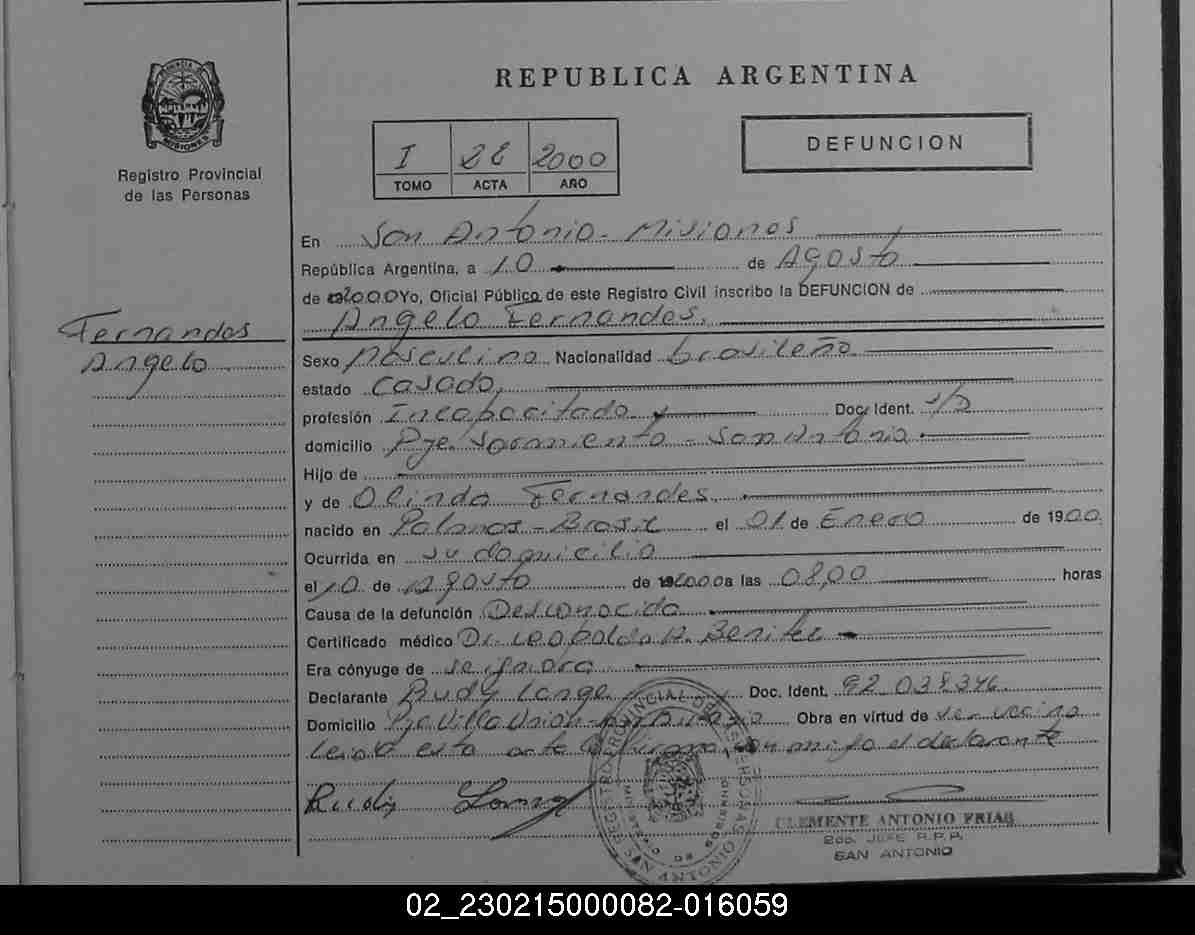 REPUBLICA ARGENTINA
PROVINCIA DE MISIONES
Registro Provincial
de las Personas
I 28 2000
TOMO ACTA AÑO
DEFUNCION
En San Antonio - Misiones
República Argentina, a 10 de Agosto
de 2000 Yo, Oficial Público de este Registro Civil inscribo la DEFUNCION de
Angelo Fernandes.
Fernandes
Angelo
Sexo Masculino Nacionalidad brasileño
estado casado,
profesión Incapacitado Doc. Ident. S/D
domicilio Pje. Sarmiento - San Antonio
Hijo de
y de Olinda Fernandes
nacido en Palmas - Brasil el 01 de Enero de 1900
Ocurrida en su domicilio
el 10 de Agosto de 2000 a las 08,00 horas
Causa de la defunción Desconocida
Certificado médico Dr. Leopoldo A. Benitez
Era cónyuge de se ignora
Declarante Rudy Lange Doc. Ident. 92.038.346
Domicilio Villa Unión Obra en virtud de ser vecino
Leida esta acta la firma con migo el declarante
Rudy Lange
REGISTRO PROVINCIAL DE LAS PERSONAS
SAN ANTONIO
CLEMENTE ANTONIO FRIAS
2do. JEFE R.P.P.
SAN ANTONIO
02_230215000082-016059